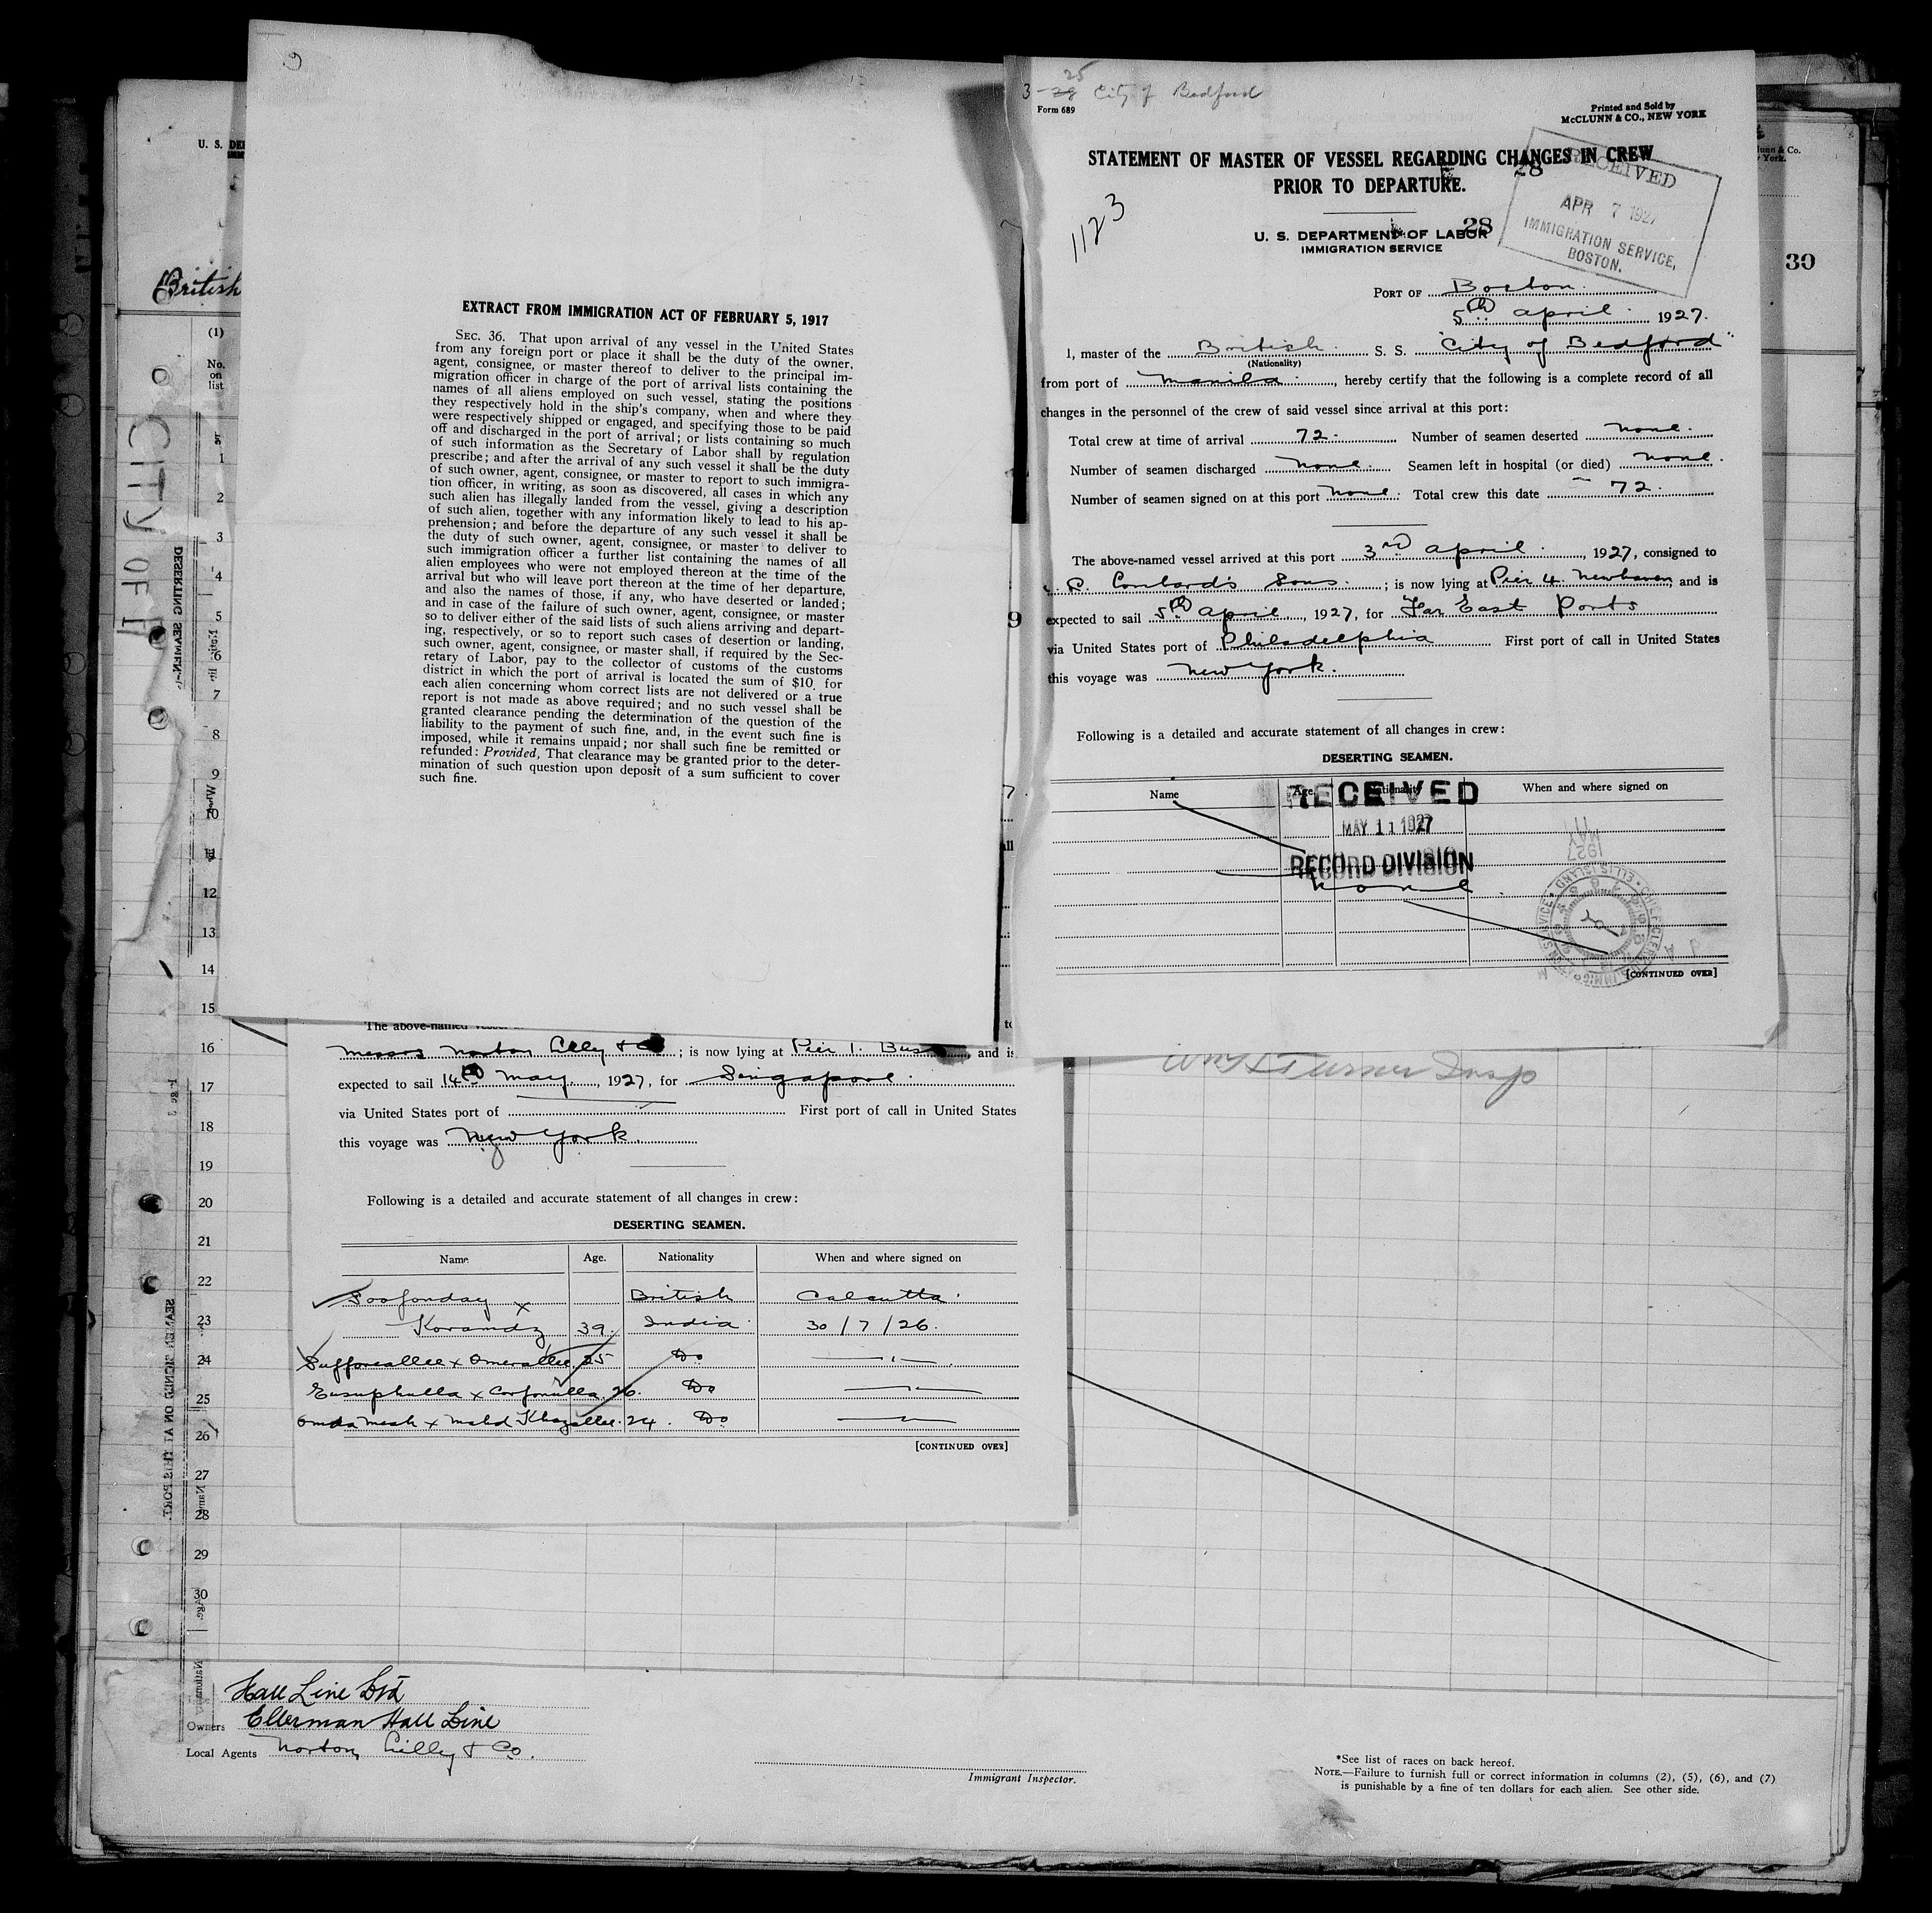 EXTRACT FROM IMMIGRATION ACT OF FEBRUARY 5, 1917
SEC. 36. That upon arrival of any vessel in the United States
from any foreign port or place it shall be the duty of the owner,
agent, consignee, or master thereof to deliver to the principal im-
migration officer in charge of the port of arrival lists containing the
names of all aliens employed on such vessel, stating the positions
they respectively hold in the ship's company, when and where they
were respectively shipped or engaged, and specifying those to be paid
off and discharged in the port of arrival; or lists containing so much
of such information as the Secretary of Labor shall by regulation
prescribe; and after the arrival of any such vessel it shall be the duty
of such owner, agent, consignee, or master to report to such immigra-
tion officer, in writing, as soon as discovered, all cases in which any
such alien has illegally landed from the vessel, giving a description
of such alien, together with any information likely to lead to his ap-
prehension; and before the departure of any such vessel it shall be
the duty of such owner, agent, consignee, or master to deliver to
such immigration officer a further list containing the names of all
alien employees who were not employed thereon at the time of the
arrival but who will leave port thereon at the time of her departure,
and also the names of those, if any, who have deserted or landed;
and in case of the failure of such owner, agent, consignee, or master
so to deliver either of the said lists of such aliens arriving and depart-
ing, respectively, or so to report such cases of desertion or landing,
such owner, agent, consignee, or master shall, if required by the Sec-
retary of Labor, pay to the collector of customs of the customs
district in which the port of arrival is located the sum of $10. for
each alien concerning whom correct lists are not delivered or a true
report is not made as above required; and no such vessel shall be
granted clearance pending the determination of the question of the
liability to the payment of such fine, and, in the event such fine is
imposed, while it remains unpaid; nor shall such fine be remitted or
refunded: Provided, That clearance may be granted prior to the deter-
mination of such question upon deposit of a sum sufficient to cover
such fine.
3-28 25 City of Bedford
Form 689
Printed and Sold by
McCLUNN & CO., NEW YORK
STATEMENT OF MASTER OF VESSEL REGARDING CHANGES IN CREW
PRIOR TO DEPARTURE.
28
1123
RECEIVED
APR 7 1927
IMMIGRATION SERVICE,
BOSTON.
U. S. DEPARTMENT OF LABOR
28
IMMIGRATION SERVICE
PORT OF Boston.
5th april 1927.
I, master of the British S. S. "City of Bedford"
(Nationality)
from port of Manila, hereby certify that the following is a complete record of all
changes in the personnel of the crew of said vessel since arrival at this port:
Total crew at time of arrival 72. Number of seamen deserted none.
Number of seamen discharged none. Seamen left in hospital (or died) none.
Number of seamen signed on at this port none. Total crew this date 72.
The above-named vessel arrived at this port 3rd april, 1927, consigned to
Sons.; is now lying at Pier 4. Newhaven, and is
expected to sail 5th april, 1927, for Far East Ports
via United States port of Philadelphia First port of call in United States
this voyage was New York.
Following is a detailed and accurate statement of all changes in crew:
DESERTING SEAMEN.
Name Age. Nationality When and where signed on
RECEIVED
MAY 11 1927
RECORD DIVISION
none
[CONTINUED OVER]
30
U. S. DE
British
(1)
No.
on
list
CITY OF
DESERTING SEAMEN
1
2
3
4
5
6
7
8
9
10
11
12
13
14
15
16
17
18
19
20
21
22
23
24
25
26
27
28
29
30
The above-named
Messrs Norton Lilly & Co; is now lying at Pier 1. Bus and is
expected to sail 14th May, 1927, for Singapore.
via United States port of First port of call in United States
this voyage was New York.
Following is a detailed and accurate statement of all changes in crew:
DESERTING SEAMEN.
Name Age. Nationality When and where signed on
Foofonday x British Calcutta.
Koramdz 39. India 30/7/26.
Sufforeallee x Omerallee 25 Do —"—
Eusuphulla x Corfonulla. 26. Do —"—
Omdamesh x Mahd Khazallee. 24. Do —"—
[CONTINUED OVER]
Turner Insp
Hall Line Ltd
Owners Ellerman Hall Line
Local Agents Norton, Lilly & Co.
Immigrant Inspector.
*See list of races on back hereof.
NOTE.—Failure to furnish full or correct information in columns (2), (5), (6), and (7)
is punishable by a fine of ten dollars for each alien. See other side.